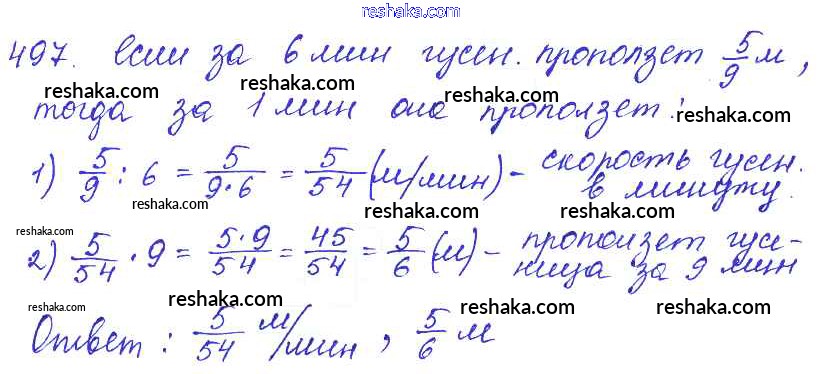 reshaka.com
497. Если за 6 мин гусен. проползет 5/9 м,
reshaka.com reshaka.com reshaka.com
тогда за 1 мин она проползет:
reshaka.com reshaka.com
1) 5/9 : 6 = 5/(9·6) = 5/54 (м/мин) - скорость гусен.
в минуту.
reshaka.com reshaka.com reshaka.com
2) 5/54 · 9 = (5·9)/54 = 45/54 = 5/6 (м) - проползет гусе-
ница за 9 мин
reshaka.com reshaka.com reshaka.com reshaka.com
Ответ: 5/54 м/мин, 5/6 м
reshaka.com reshaka.com